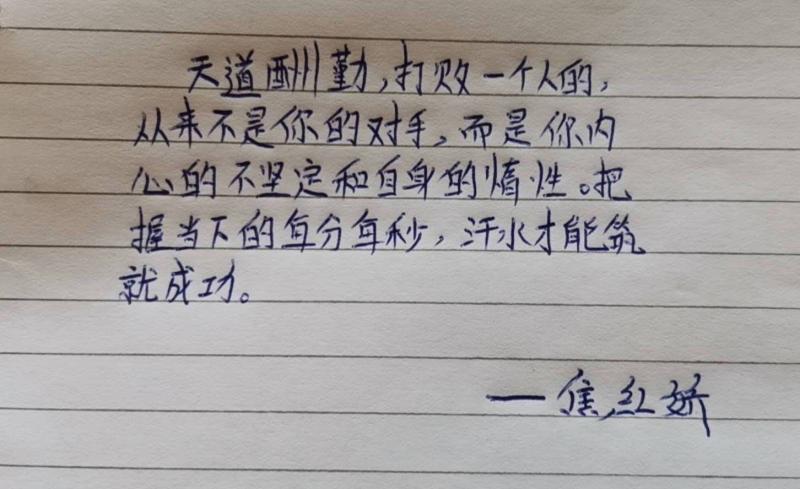 天道酬勤,打败一个人的,
从来不是你的对手,而是你内
心的不坚定和自身的惰性。把
握当下的每分每秒,汗水才能筑
就成功。
——焦红娇